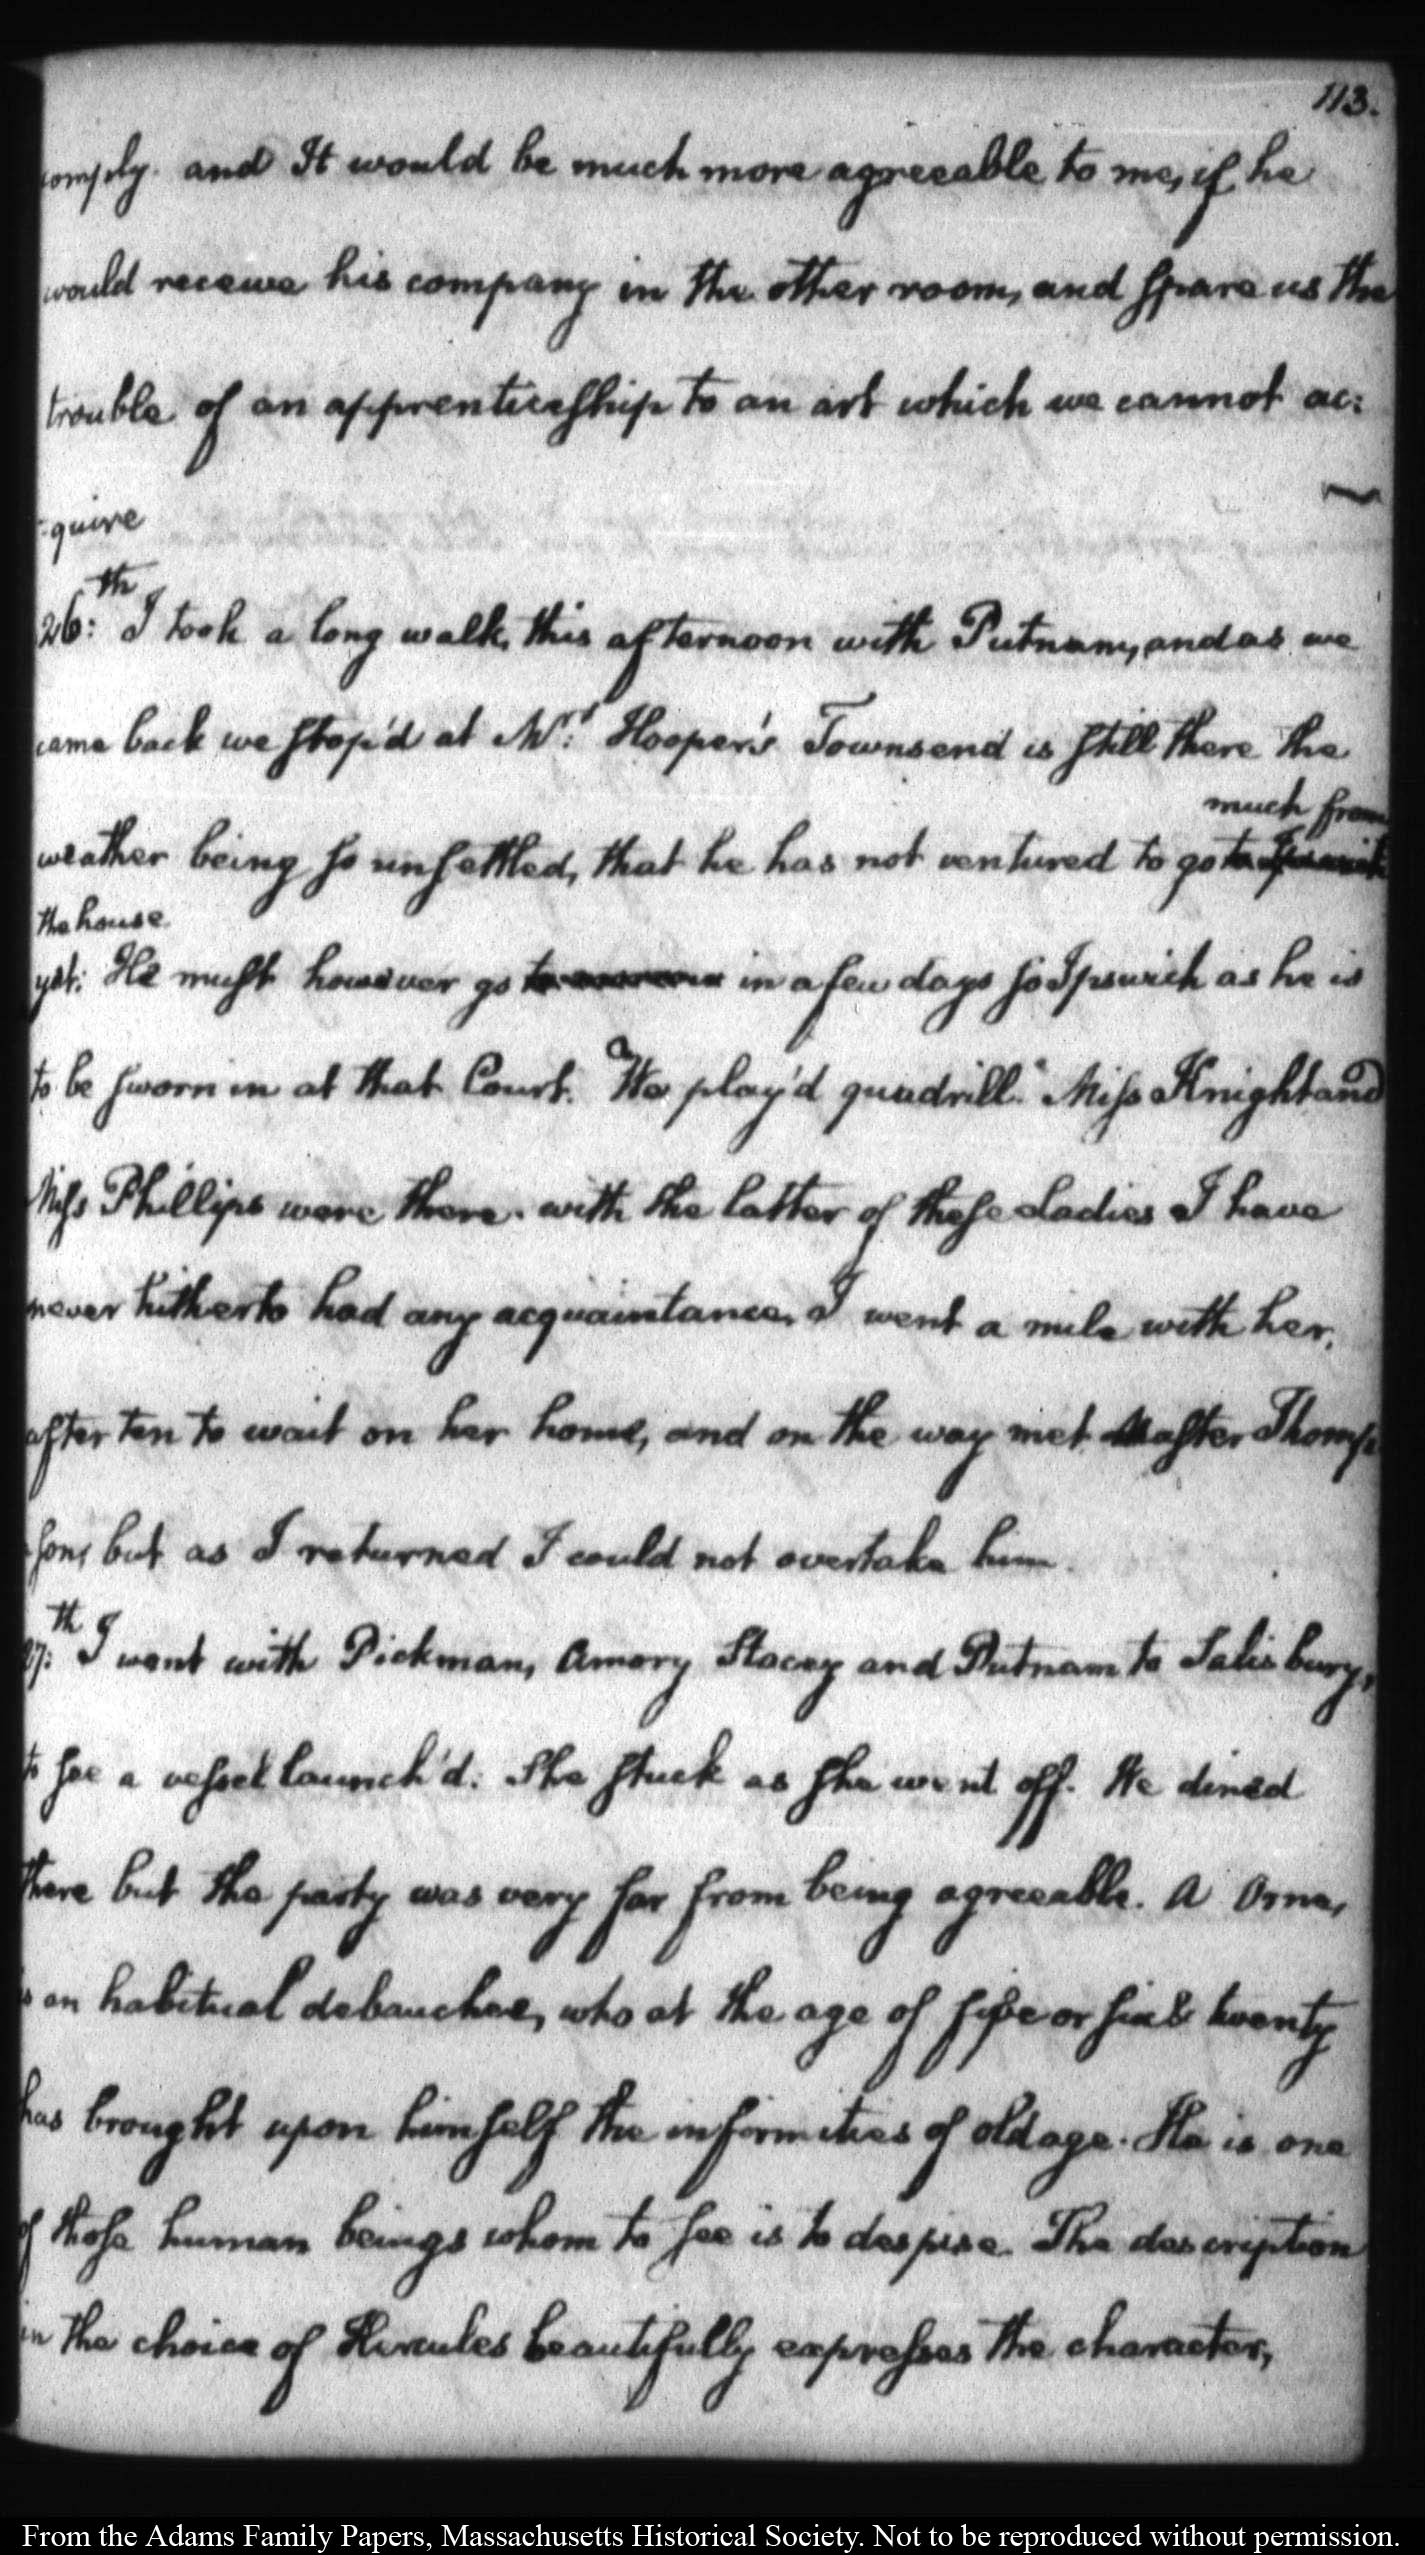 113.
comply. and It would be much more agreeable to me, if he
would receive his company in the other room, and spare us the
trouble of an apprenticeship to an art which we cannot ac:
:quire
26:th I took a long walk, this afternoon with Putnam, and as we
came back we stop'd at Mrs: Hooper's Townsend is still there the
much from
weather being so unsettled, that he has not ventured to go to Ipswich
the house
yet: He must however go in a few days to Ipswich as he is
to be sworn in at that Court. We play'd quadrill. Miss Knight and
Miss Phillips were there. with the latter of these Ladies I have
never hitherto had any acquaintance, I went a mile with her,
after ten to wait on her home, and on the way met Master Thomp
:son, but as I returned I could not overtake him.
27:th I went with Pickman, Amory Stacey and Putnam to Salisbury,
to see a vessel launch'd. She stuck as she went off. We dined
there but the party was very far from being agreeable. A Orne,
is an habitual debauchee, who at the age of five or six & twenty
has brought upon himself the infirmities of old age. He is one
of those human beings whom to see is to despise. The description
in the choice of Hercules beautifully expresses the character,
From the Adams Family Papers, Massachusetts Historical Society. Not to be reproduced without permission.